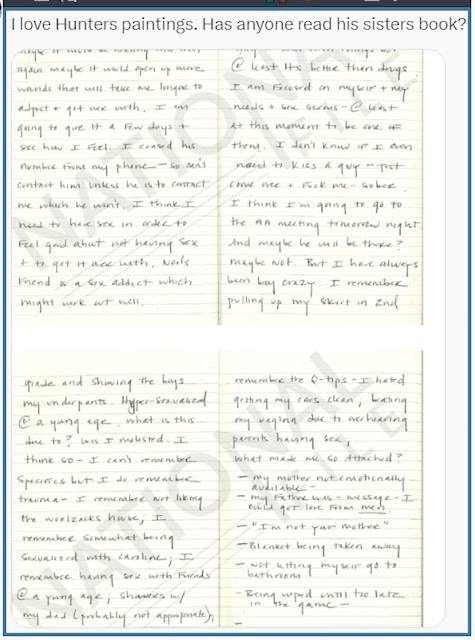 I love Hunters paintings. Has anyone read his sisters book?
again maybe it would open up more
wounds that will take me longer to
adjust + get over with. I am
going to give it a few days +
see how I feel. I erased his
number from my phone – so can't
contact him unless he is to contact
me which he won't. I think I
need to have sex in order to
feel good about not having sex
+ to get it over with. Neals
friend is a sex addict which
might work out well.
@ least its better than drugs
I am focused on myself + my
needs + sex seems – @ least
at this moment to be one of
them. I don't know if I even
need to kiss a guy – just
come over + fuck me – sober.
I think I'm going to go to
the AA meeting tomorrow night
And maybe he will be there?
maybe not. But I have always
been boy crazy. I remember
pulling up my skirt in 2nd
grade and showing the boys
my underpants. Hyper-sexualized
@ a young age. What is this
due to? Was I molested. I
think so – I can't remember
specifics but I do remember
trauma – I remember not liking
the woolzacks house; I
remember somewhat being
sexualized with caroline; I
remember having sex with friends
@ a young age; showers w/
my dad (probably not appropriate);
remember the Q-tips – I hated
getting my ears clean;
vagina due to overhearing
parents having sex;
What made me so attached?
– my mother not emotionally
available –
– my Father was – message – I
could get love from men
– "I'm not your mother"
– Blanket being taken away
– not letting myself go to
bathroom
– Being until too late
in the game –
NATIONAL
NATIONAL